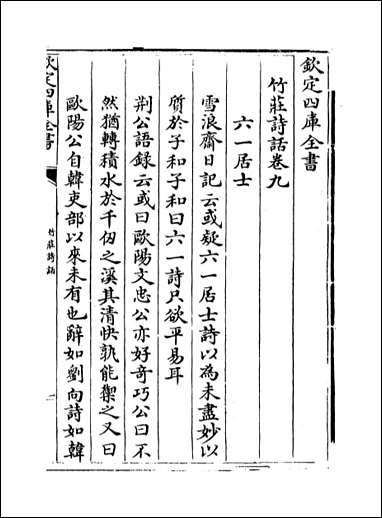 欽定四庫全書
竹莊詩話卷九
六一居士
雪浪齋日記云或疑六一居士詩以為未盡妙以
質於子和子和曰六一詩只欲平易耳
荆公語錄云或曰歐陽文忠公亦好奇巧公曰不
然猶轉積水於千仞之溪其清快孰能禦之又曰
歐陽公自韓吏部以來未有也辭如劉向詩如韓
欽定四庫全書
竹莊詩話
一